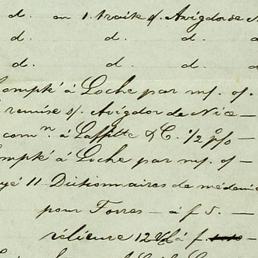 d. en 1. traite s/. Avigdor de N
d. d. d.
d. d. d.
ompté à Loche par m/. o/.
remise s/. Avigdor de Nice —
com.n à Laffitte & C. 1/2 p%
ompté à Loche par m/. o/. —
yé 11 Dictionnaires de médecin
pour Torres — à f 5. —
reliure 12 Vol à f.